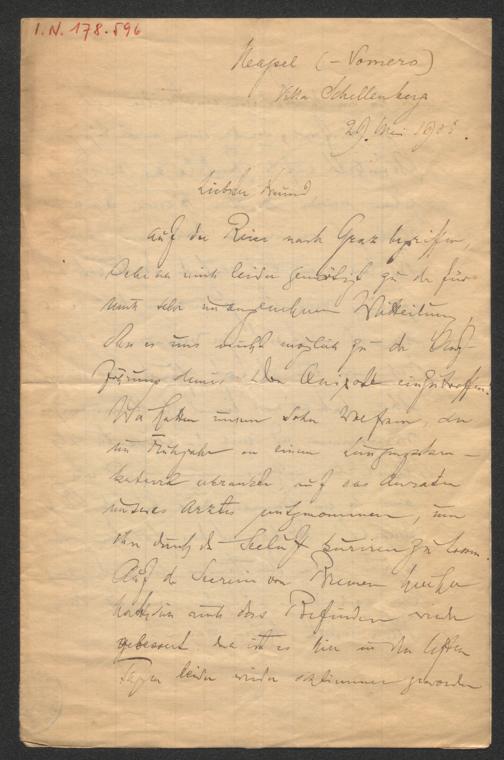 I.N. 178.596
Neapel (-Vomero)
Villa Schellenberg
29. Mai 1905.
Liebster Freund
Auf der Reise nach Graz begriffen,
sehe ich mich leider genötigt zu der für
mich sehr unangenehmen Mitteilung,
daß es uns nicht möglich zu der Auf-
führung deines Don Quixote einzutreffen.
Wir hatten unsern Sohn Wolfram, der
im Frühjahr an einem Lungenspitzen-
katarrh erkrankte, auf das Anraten
unseres Arztes mitgenommen, um
ihn durch die Seeluft kuriren zu lassen.
Auf der Seereise von Bremen hierher
hatte sich auch das Befinden
gebessert da ist es hier in den letzten
Tagen leider wieder schlimmer geworden